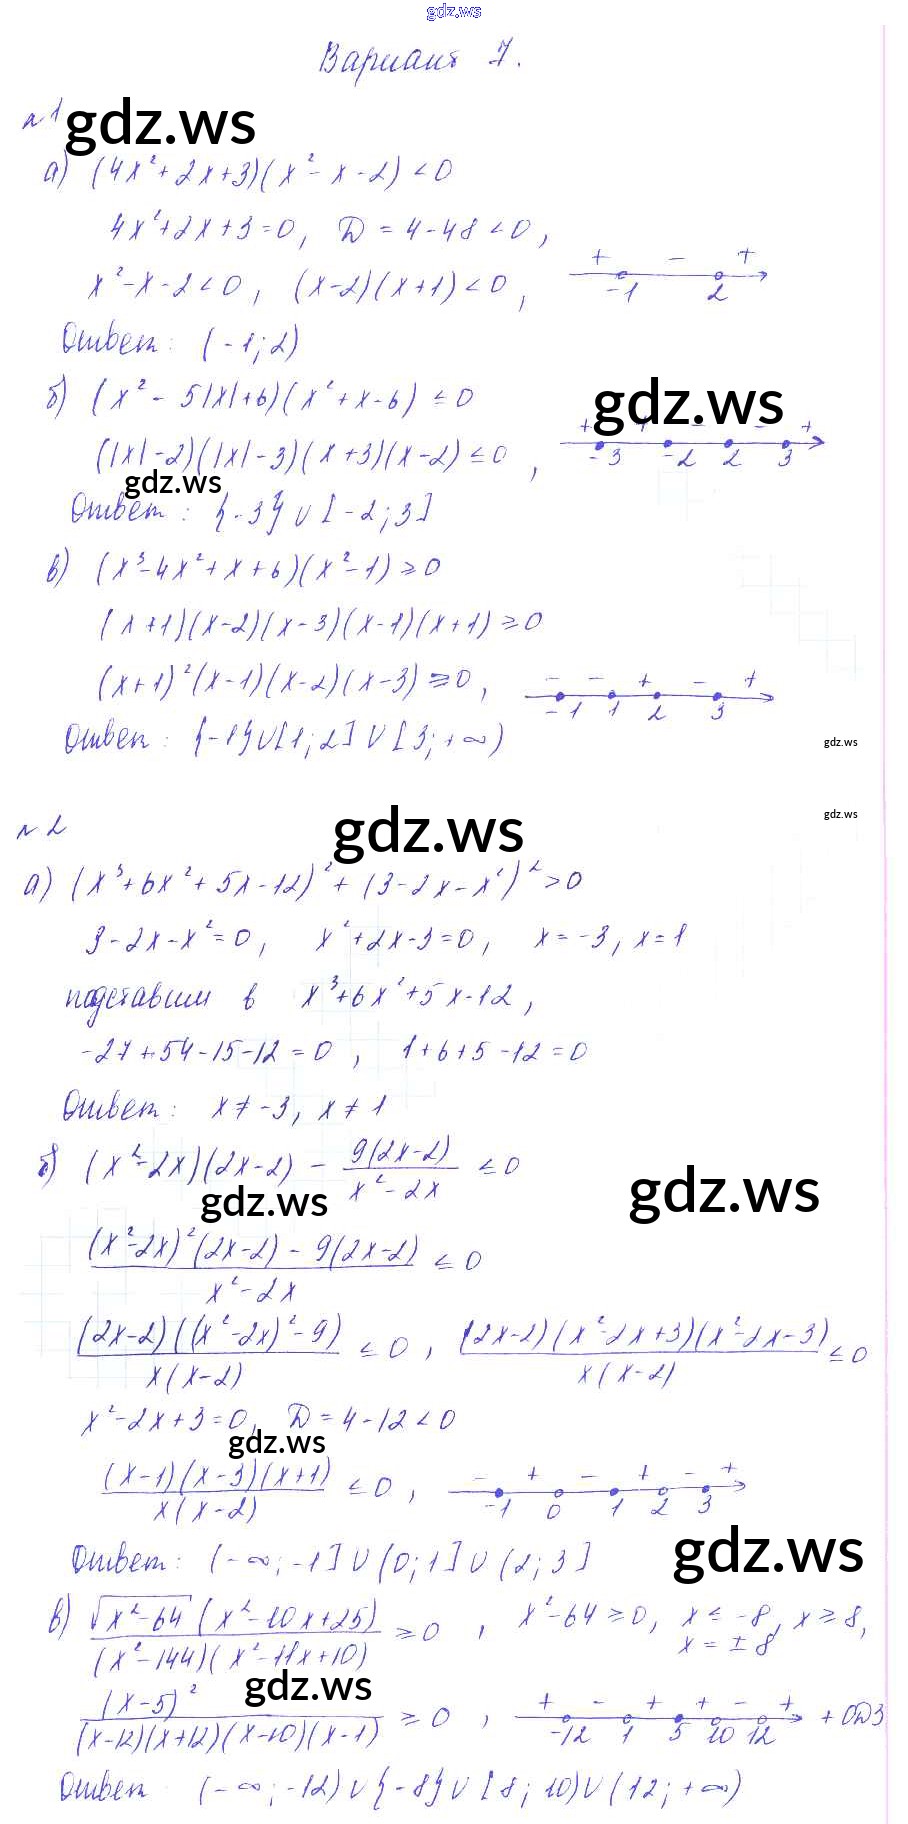 gdz.ws
Вариант 7.
№1 gdz.ws
а) (4x²+2x+3)(x²-x-2)<0
4x²+2x+3=0, D=4-48<0,
x²-x-2<0, (x-2)(x+1)<0, + - + -1 2
Ответ: (-1;2)
б) (x²-5|x|+6)(x²+x-6)≤0 gdz.ws
(|x|-2)(|x|-3)(x+3)(x-2)≤0, + + - - + -3 -2 2 3
gdz.ws
Ответ: {-3}∪[-2;3]
в) (x³-4x²+x+6)(x²-1)≥0
(x+1)(x-2)(x-3)(x-1)(x+1)≥0
(x+1)²(x-1)(x-2)(x-3)≥0, - - + - + -1 1 2 3
Ответ: {-1}∪[1;2]∪[3;+∞) gdz.ws
gdz.ws
№2 gdz.ws
а) (x³+6x²+5x-12)²+(3-2x-x²)²>0
3-2x-x²=0, x²+2x-3=0, x=-3, x=1
подставим в x³+6x²+5x-12,
-27+54-15-12=0, 1+6+5-12=0
Ответ: x≠-3, x≠1
б) (x²-2x)(2x-2) - 9(2x-2)/(x²-2x) ≤0
gdz.ws gdz.ws
((x²-2x)²(2x-2)-9(2x-2))/(x²-2x) ≤0
(2x-2)((x²-2x)²-9)/(x(x-2)) ≤0, (2x-2)(x²-2x+3)(x²-2x-3)/(x(x-2)) ≤0
x²-2x+3=0, D=4-12<0
gdz.ws
(x-1)(x-3)(x+1)/(x(x-2)) ≤0, - + - + - + -1 0 1 2 3
gdz.ws
Ответ: (-∞;-1]∪(0;1]∪(2;3]
в) √(x²-64)(x²-20x+25)/((x²-144)(x²-11x+10)) ≥0, x²-64≥0, x≤-8, x≥8,
x=±8
gdz.ws
(x-5)²/((x-12)(x+12)(x-10)(x-1)) ≥0, + - + + - + -12 1 5 10 12 + ОДЗ
Ответ: (-∞;-12)∪{-8}∪[8;10)∪(12;+∞)